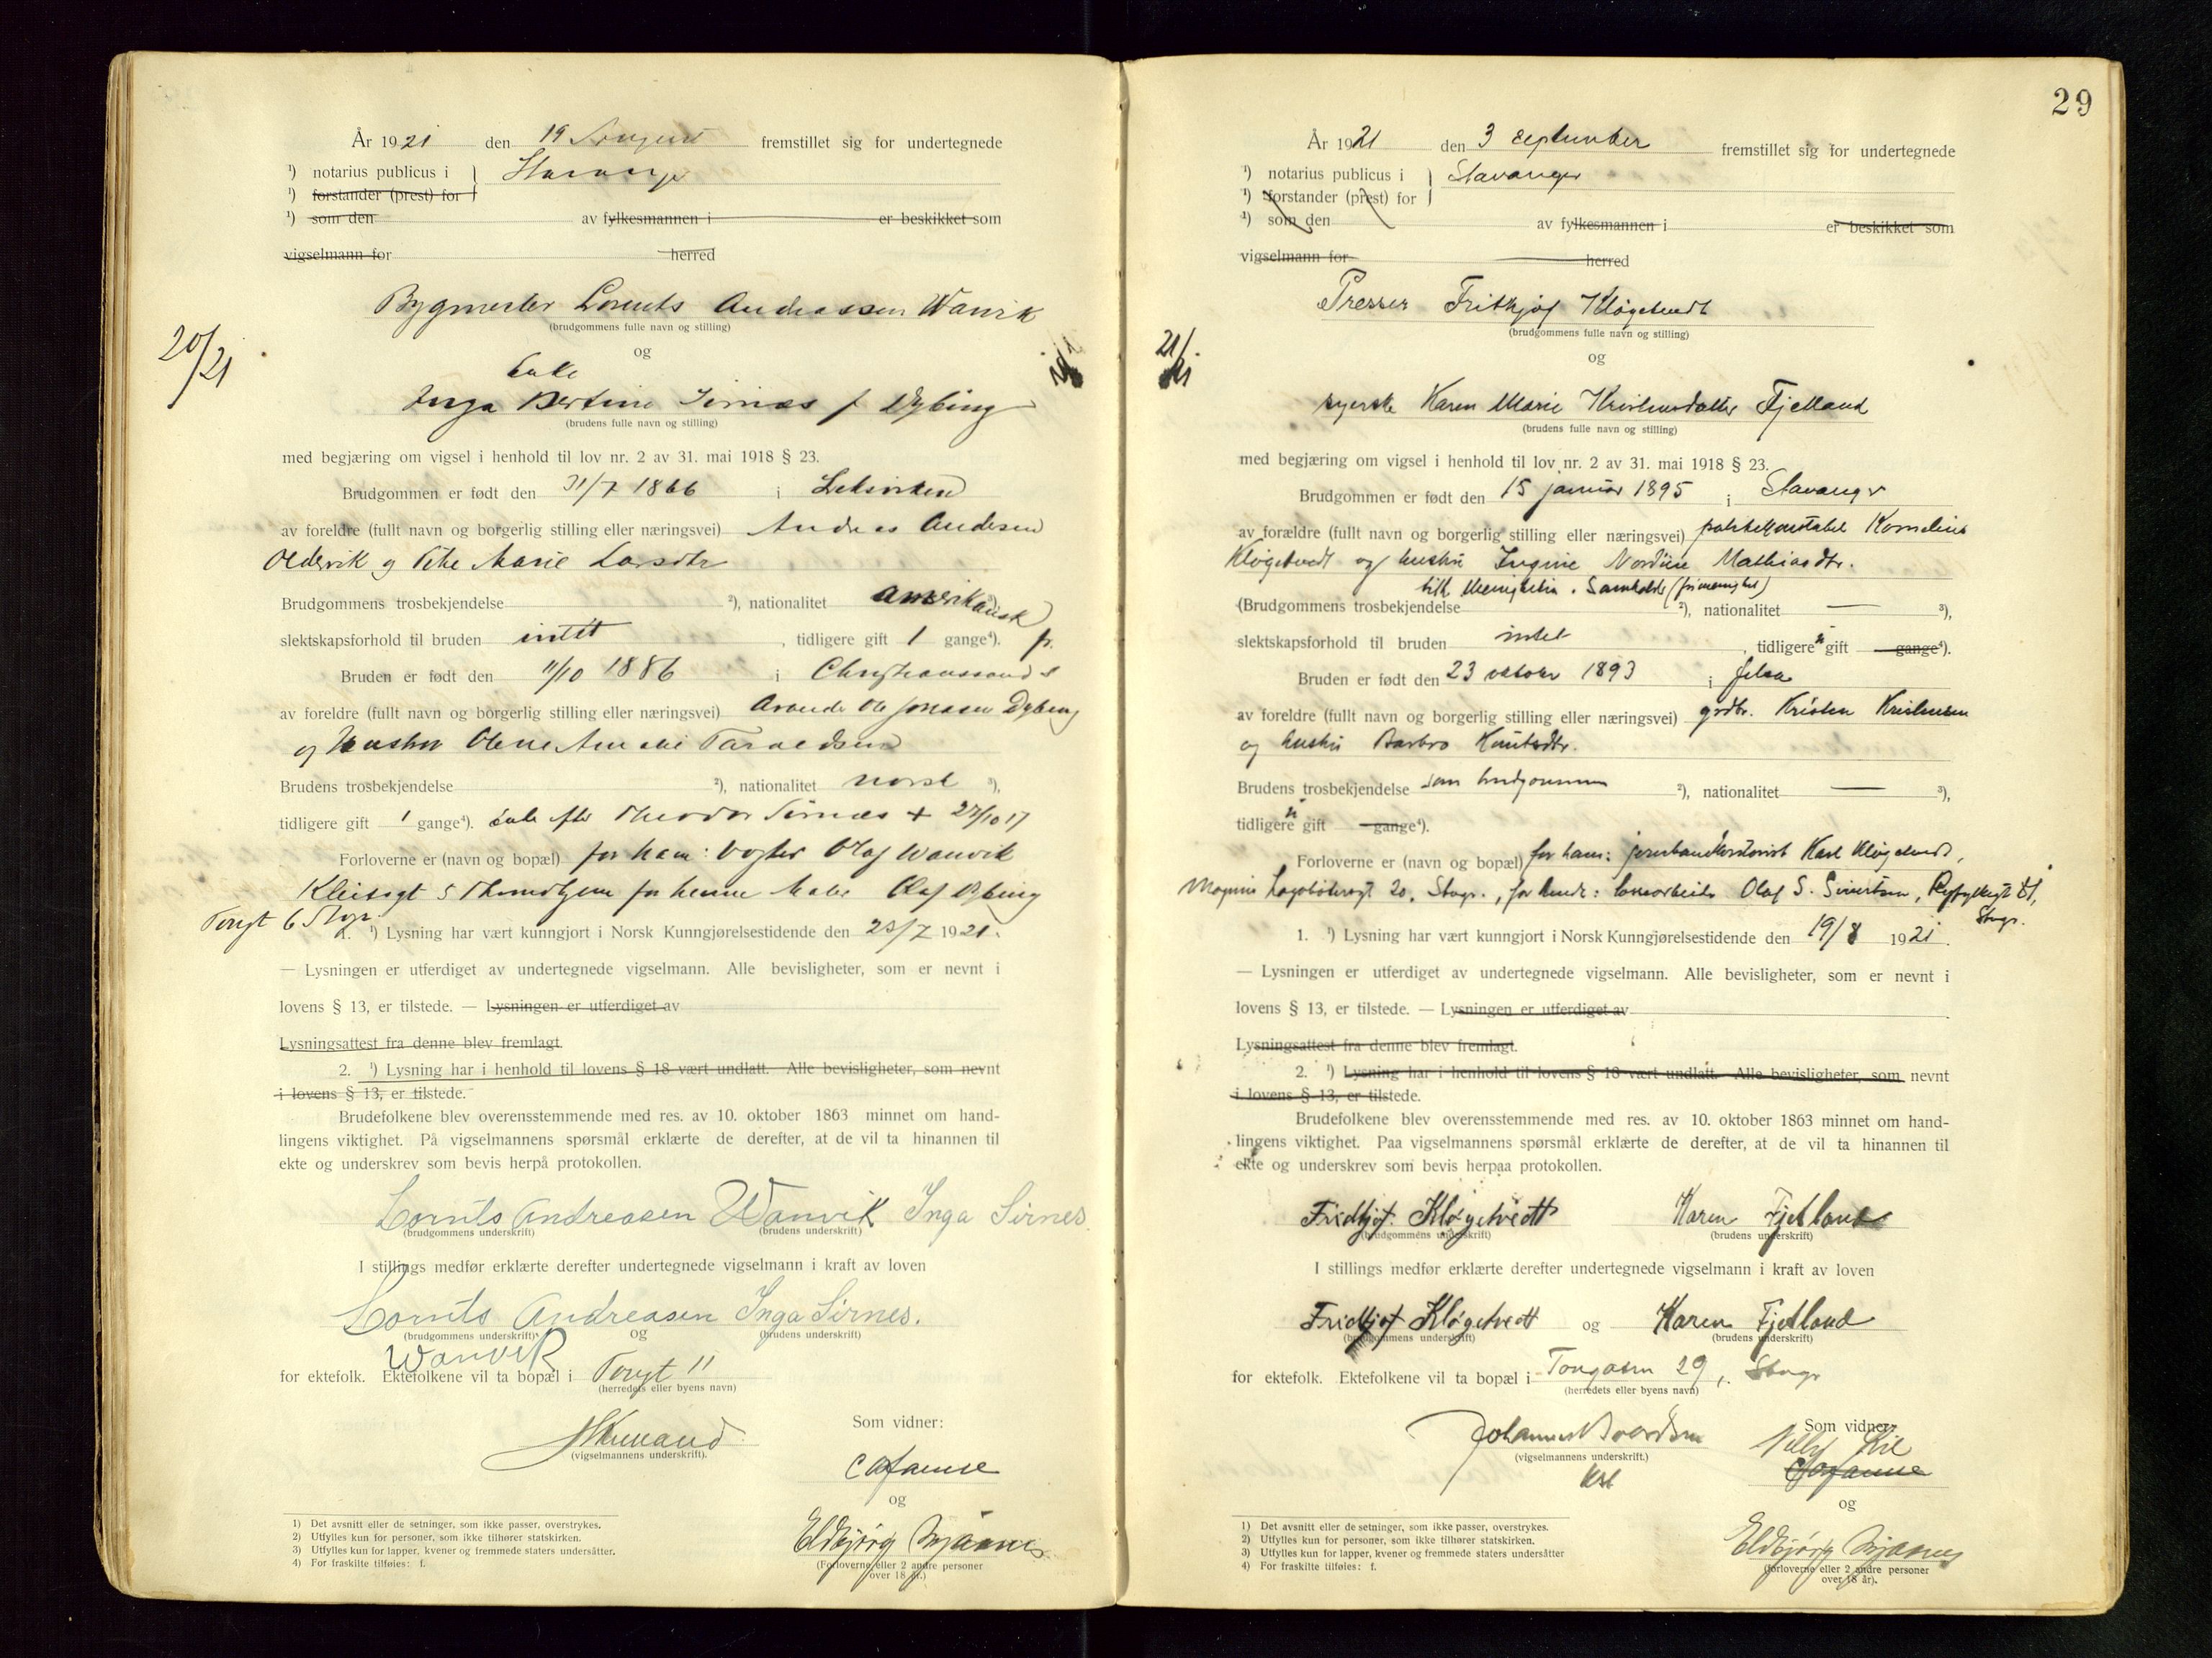 År 1921 den 19 August fremstillet sig for undertegnede
¹) notarius publicus i } Stavanger
¹) forstander (prest) for
¹) som den av fylkesmannen i er beskikket som
vigselmann for herred
Bygmester Lorents Andreassen Wanvik
(brudgommens fulle navn og stilling)
20/21
og
Enke
Inga Bertine Sirnæs f Dybing
(brudens fulle navn og stilling)
med begjæring om vigsel i henhold til lov nr. 2 av 31. mai 1918 § 23.
Brudgommen er født den 31/7 1866 i Leksviken
av foreldre (fullt navn og borgerlig stilling eller næringsvei) Andreas Andersen
Oldervik og Marie Larsdtr
Brudgommens trosbekjendelse ²), nationalitet amerikansk ³),
slektskapsforhold til bruden intet, tidligere gift 1 gange⁴). fr.
Bruden er født den 11/10 1886 i Christianssand S
av foreldre (fullt navn og borgerlig stilling eller næringsvei) Ole Jonassen Dybing
og Hustru Olene Amalie Taraldsen
Brudens trosbekjendelse ²), nationalitet norsk ³),
tidligere gift 1 gange⁴). enke efter Theodor Sirnæs + 27/10 17
Forloverne er (navn og bopæl) for ham: Olaf Wanvik
5 Throndhjem for henne Maler Olaf Dybing
Torvgt 6 Stvgr.
1. ¹) Lysning har vært kunngjort i Norsk Kunngjørelsestidende den 23/7 1921.
— Lysningen er utferdiget av undertegnede vigselmann. Alle bevisligheter, som er nevnt i
lovens § 13, er tilstede. — Lysningen er utferdiget av
Lysningsattest fra denne blev fremlagt.
2. ¹) Lysning har i henhold til lovens § 18 vært undlatt. Alle bevisligheter, som nevnt
i lovens § 13, er tilstede.
Brudefolkene blev overensstemmende med res. av 10. oktober 1863 minnet om hand-
lingens viktighet. På vigselmannens spørsmål erklærte de derefter, at de vil ta hinannen til
ekte og underskrev som bevis herpå protokollen.
Lornts Andreasen Wanvik Inga Sirnes.
(brudgommens underskrift) (brudens underskrift)
I stillings medfør erklærte derefter undertegnede vigselmann i kraft av loven
Lornts Andreasen Inga Sirnes.
(brudgommens underskrift) og (brudens underskrift)
Wanvik
for ektefolk. Ektefolkene vil ta bopæl i Torvgt 11
(herredets eller byens navn)
Som vidner:
(vigselmannens underskrift).
og
Eldbjørg
(Forloverne eller 2 andre personer
over 18 år.)
1) Det avsnitt eller de setninger, som ikke passer, overstrykes.
2) Utfylles kun for personer, som ikke tilhører statskirken.
3) Utfylles kun for lapper, kvener og fremmede staters undersåtter.
4) For fraskilte tilføies: f.
29
År 1921 den 3 september fremstillet sig for undertegnede
¹) notarius publicus i } Stavanger
¹) forstander (prest) for
¹) som den av fylkesmannen i er beskikket som
vigselmann for herred
Presser Frithjof Kløgetvedt
(brudgommens fulle navn og stilling)
21/21
og
syerske Karen Marie Kristensdatter Fjelland
(brudens fulle navn og stilling)
med begjæring om vigsel i henhold til lov nr. 2 av 31. mai 1918 § 23.
Brudgommen er født den 15 januar 1895 i Stavanger
av forældre (fullt navn og borgerlig stilling eller næringsvei) politikonstabel Kornelius
Kløgetvedt og hustru Ingine Nordine Mathiasdtr.
tilh. Menigheten Samholdet (frimenighet)
(Brudgommens trosbekjendelse ²), nationalitet — ³),
slektskapsforhold til bruden intet, tidligere ei gift gange⁴).
Bruden er født den 23 oktober 1893 i Jelsa
av foreldre (fullt navn og borgerlig stilling eller næringsvei) grdbr. Kristen Kristensen
og hustru Barbro Knutsdtr.
Brudens trosbekjendelse som brudgommen ²), nationalitet — ³),
tidligere ei gift gange⁴).
Forloverne er (navn og bopæl) for ham: Karl Kløgetvedt,
Magnus Lagabøtersgt 20, Stvgr., for hende: Olaf S. Sivertsen, Ryfylkegt 81,
Stvgr.
1. ¹) Lysning har vært kunngjort i Norsk Kunngjørelsestidende den 19/8 1921.
— Lysningen er utferdiget av undertegnede vigselmann. Alle bevisligheter, som er nevnt i
lovens § 13, er tilstede. — Lysningen er utferdiget av
Lysningsattest fra denne blev fremlagt.
2. ¹) Lysning har i henhold til lovens § 18 vært undlatt. Alle bevisligheter, som nevnt
i lovens § 13, er tilstede.
Brudefolkene blev overensstemmende med res. av 10. oktober 1863 minnet om hand-
lingens viktighet. Paa vigselmannens spørsmål erklærte de derefter, at de vil ta hinannen til
ekte og underskrev som bevis herpaa protokollen.
Fridtjof. Kløgetvedt Karen Fjelland
(brudgommens underskrift) (brudens underskrift)
I stillings medfør erklærte derefter undertegnede vigselmann i kraft av loven
Fridtjof Kløgetvedt og Karen Fjelland
(brudgommens underskrift) (brudens underskrift)
for ektefolk. Ektefolkene vil ta bopæl i Tongasen 29, Stvgr
(herredets eller byens navn)
Som vidner:
Johannes
(vigselmannens underskrift.)
og
Eldbjørg
(forloverne eller 2 andre personer
over 18 år).
1) Det avsnitt eller de setninger, som ikke passer, overstrykes.
2) Utfylles kun for personer, som ikke tilhører statskirken.
3) Utfylles kun for lapper, kvener og fremmede staters undersåtter
4) For fraskilte tilføies: f.